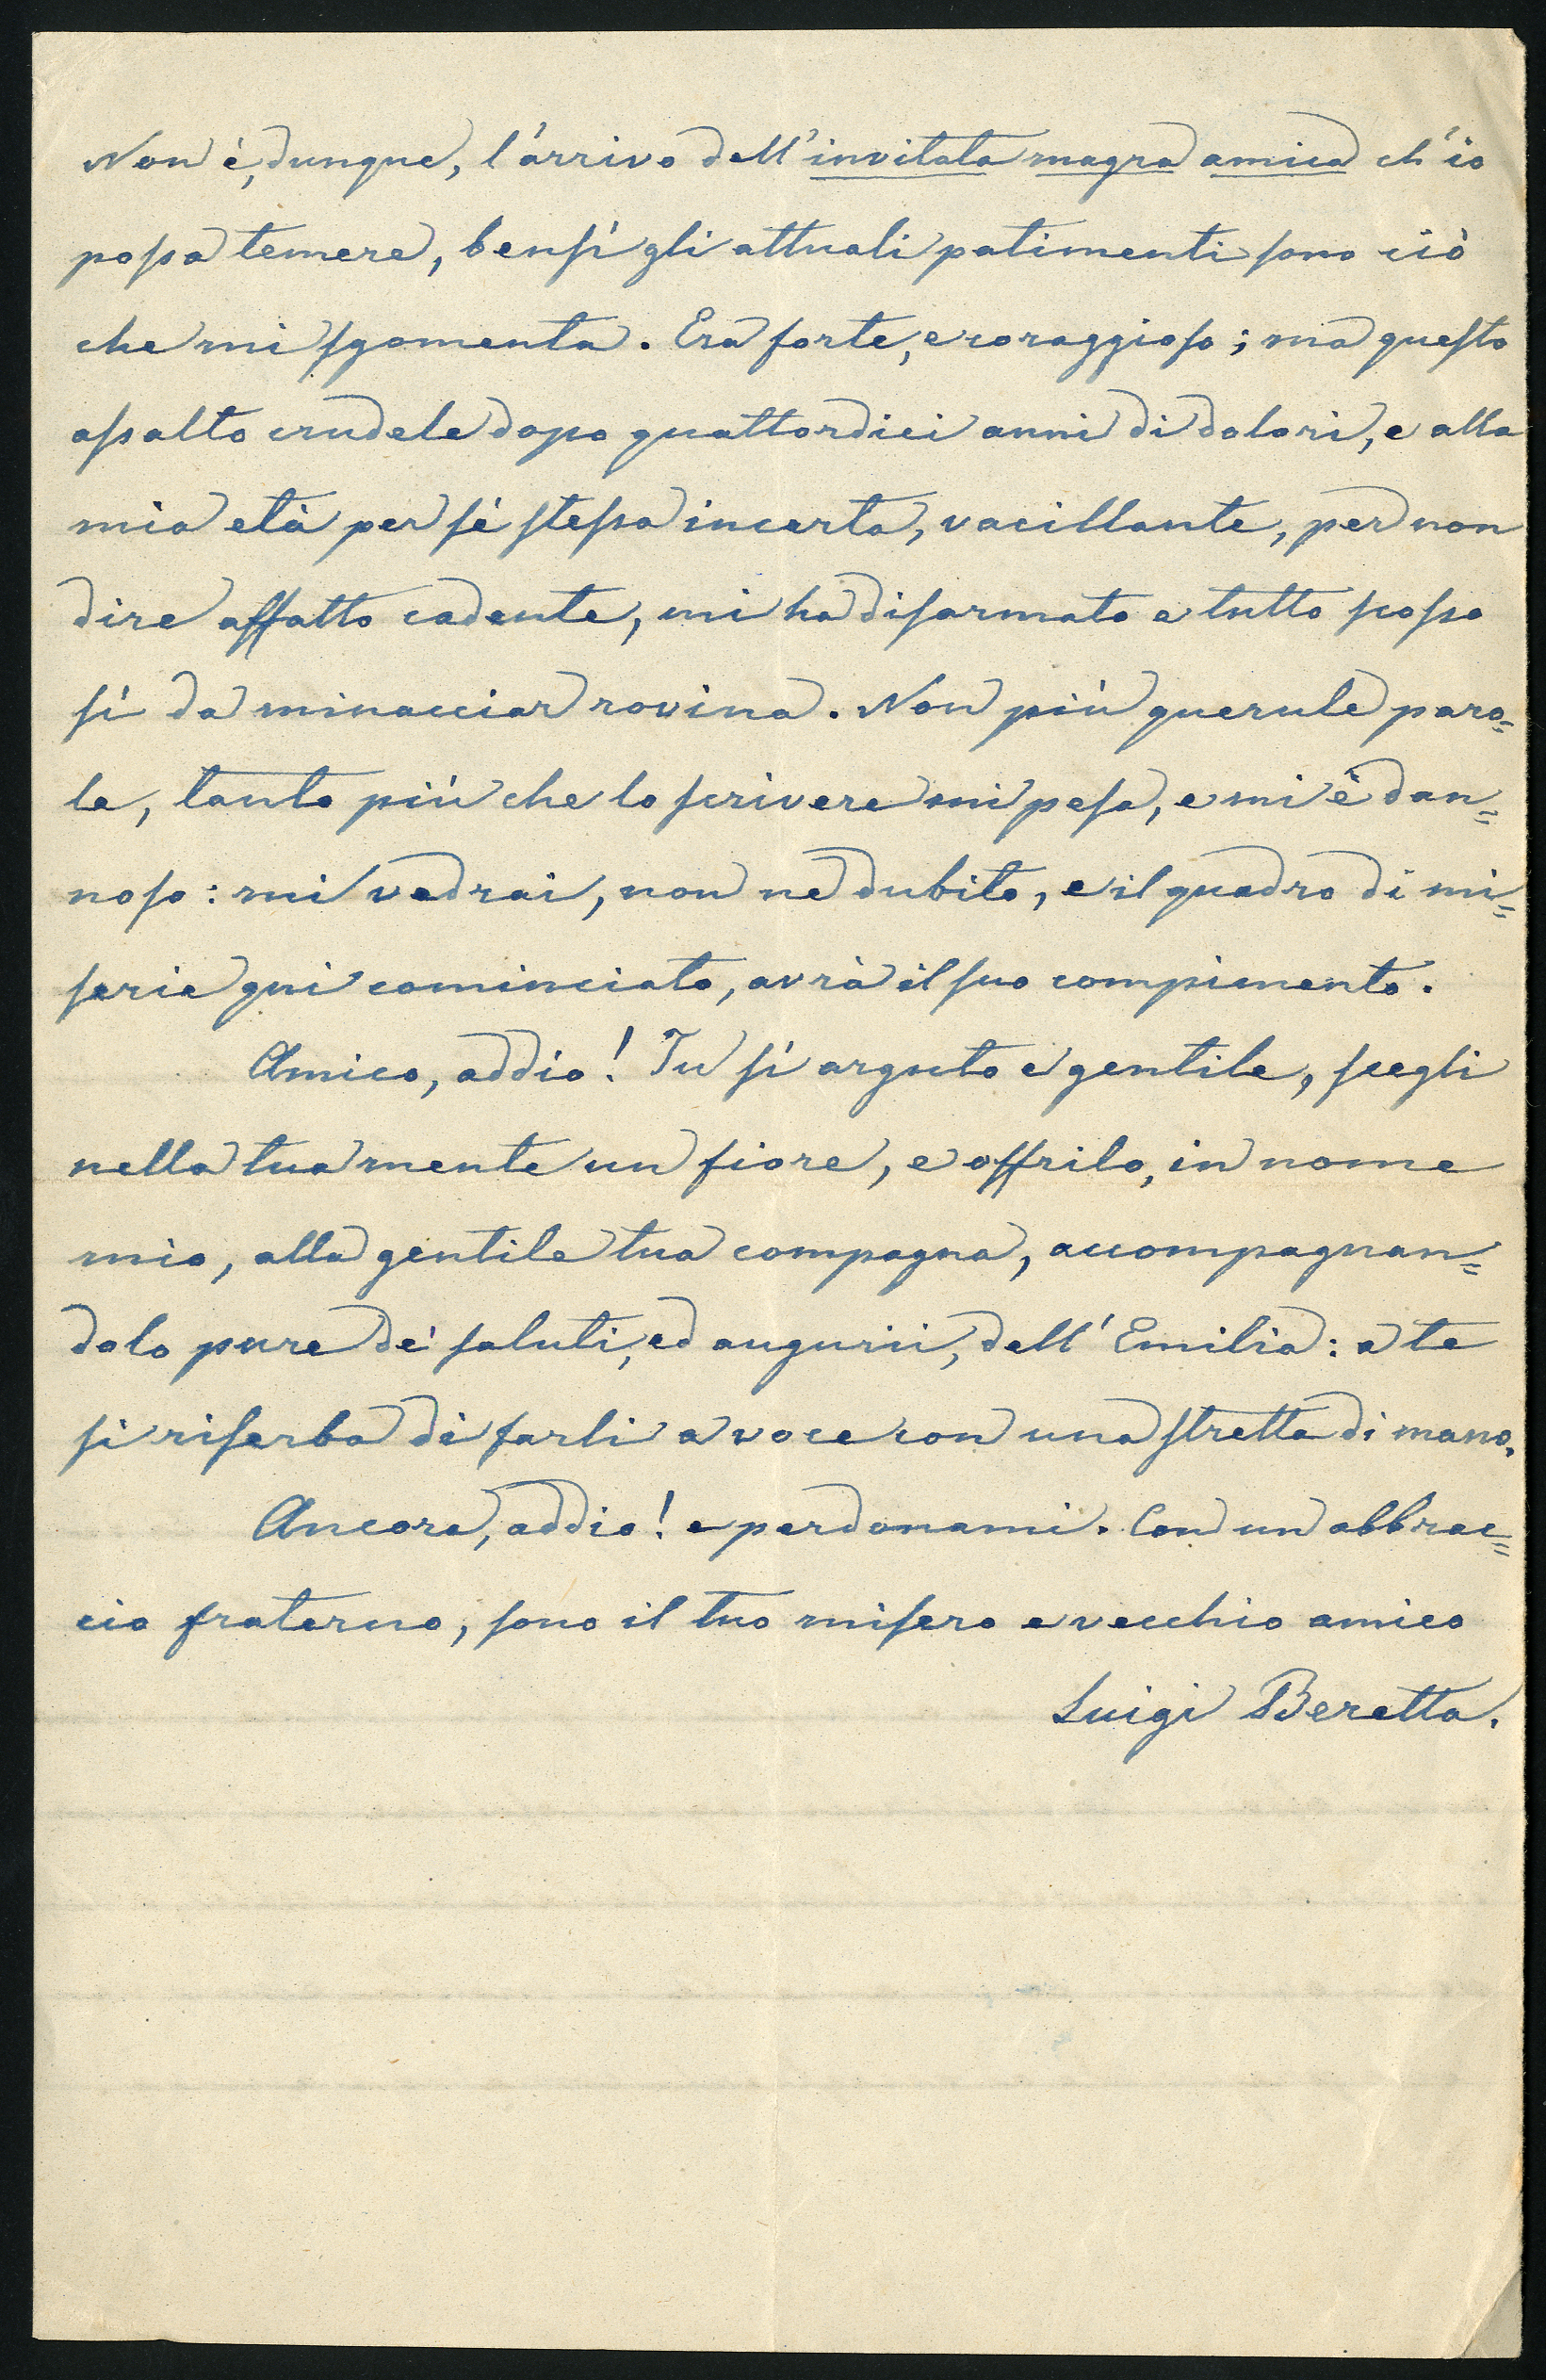 Non è, dunque, l'arrivo dell'invitata magra amica ch'io
possa temere, bensì gli attuali patimenti sono ciò
che mi sgomenta. Era forte, e coraggioso; ma questo
assalto crudele dopo quattordici anni di dolori, e alla
mia età per sè stessa incerta, vacillante, per non
dire affatto cadente, mi ha disarmato e tutto scosso
sì da minacciar rovina. Non più querule paro=
le, tanto più che lo scrivere mi pesa, e mi è dan=
noso: mi vedrai, non ne dubito, e il quadro di mi=
serie qui cominciato, avrà il suo compimento.
Amico, addio! Tu sì arguto e gentile, scegli
nella tua mente un fiore, e offrilo, in nome
mio, alla gentile tua compagna, accompagnan=
dolo pure de' saluti, ed augurii, dell'Emilia: a te
si riserba di farli a voce con una stretta di mano.
Ancora, addio! e perdonami. Con un abbrac=
cio fraterno, sono il tuo misero e vecchio amico
Luigi Beretta.